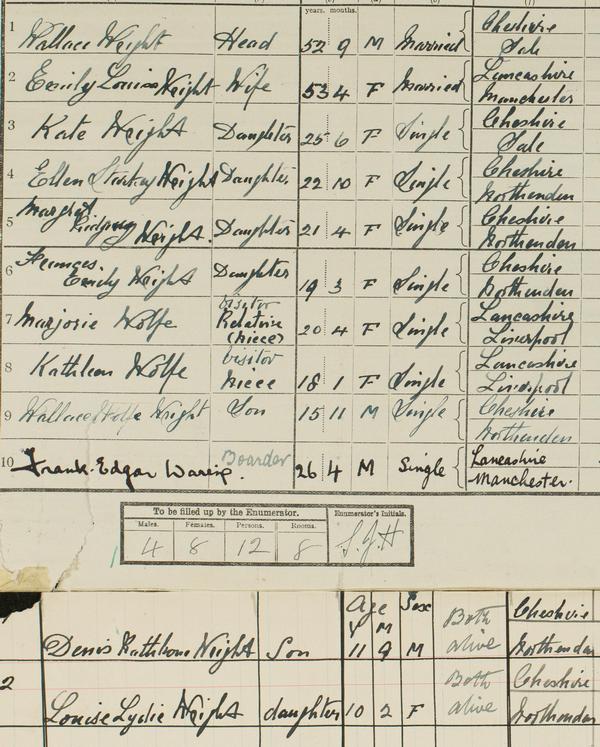 years. months.
1 Wallace Wright Head 52 9 M Married Cheshire
Sale
2 Emily Louisa Wright Wife 53 4 F Married Lancashire
Manchester
3 Kate Wright Daughter 25 6 F Single Cheshire
Sale
4 Ellen Wright Daughter 22 10 F Single Cheshire
Northenden
5 Margaret
Wright. Daughter 21 4 F Single Cheshire
Northenden
6 Frances
Emily Wright Daughter 19 3 F Single Cheshire
Northenden
7 Marjorie Wolfe visitor
Relative
(niece) 20 4 F Single Lancashire
Liverpool
8 Kathleen Wolfe visitor
niece 18 1 F Single Lancashire
Liverpool
9 Wallace Wolfe Wright Son 15 11 M Single Cheshire
Northenden
10 Frank Edgar Wareing. Boarder 26 4 M Single Lancashire
Manchester.
To be filled up by the Enumerator.
Males. Females. Persons. Rooms.
4 8 12 8
Enumerator's Initials.
Age Sex
Y M
Denis Rathbone Wright Son 11 9 M Both
alive Cheshire
Northenden
2 Louise Lydie Wright daughter 10 2 F Both
alive Cheshire
Northenden